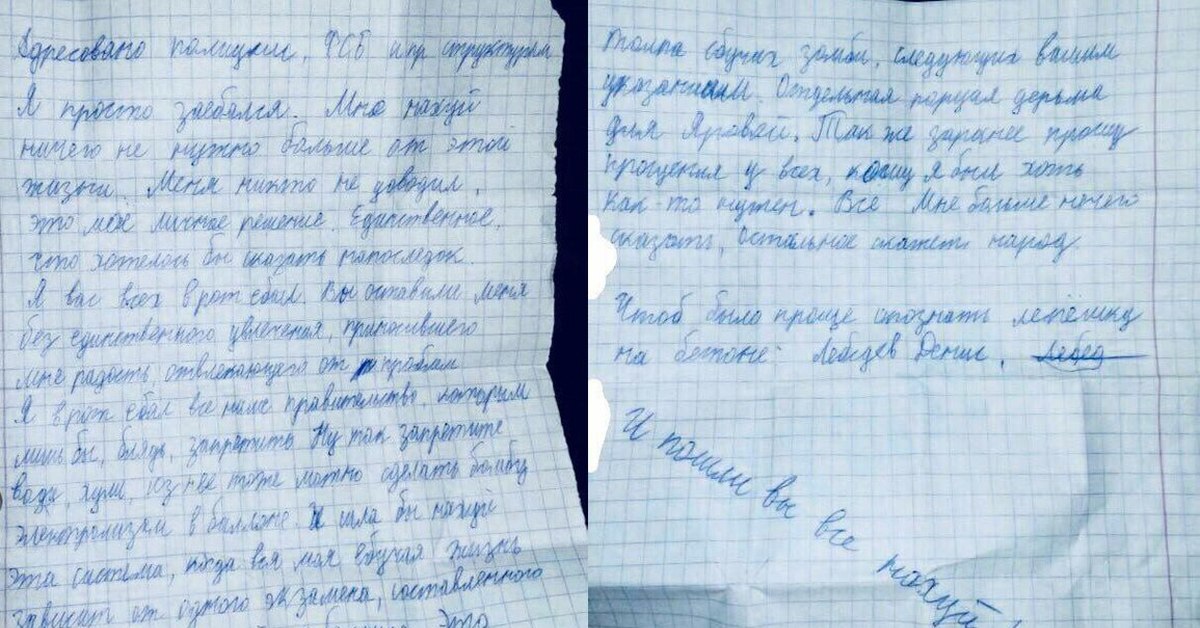 Адресовано полиции, ФСБ и пр структурам
Я просто заебался. Мне нахуй
ничего не нужно больше от этой
жизни. Меня никто не доводил,
это моё личное решение. Единственное,
что хотелось бы сказать напоследок.
Я вас всех в рот ебал. Вы оставили меня
без единственного увлечения, приносившего
мне радость, отвлекающего от проблем
Я в рот ебал все наше правительство, которым
лишь бы, блядь, запретить. Ну так запретите
воду, хули, из нее тоже можно сделать бомбу
электролизом в баллоне. И шла бы нахуй
эта система, когда вся моя ебучая жизнь
зависит от одного экзамена, составленного
Это
толпа ебучих зомби, следующих вашим
указаниям. Отдельная порция дерьма
для Яровой. Так же заранее прошу
прощения у всех, кому я был хоть
как-то нужен. Все Мне больше нечего
сказать, остальное скажет народ
Чтоб было проще опознать лепёшку
на бетоне: Лебедев Денис. Лебед
И пошли вы все нахуй!